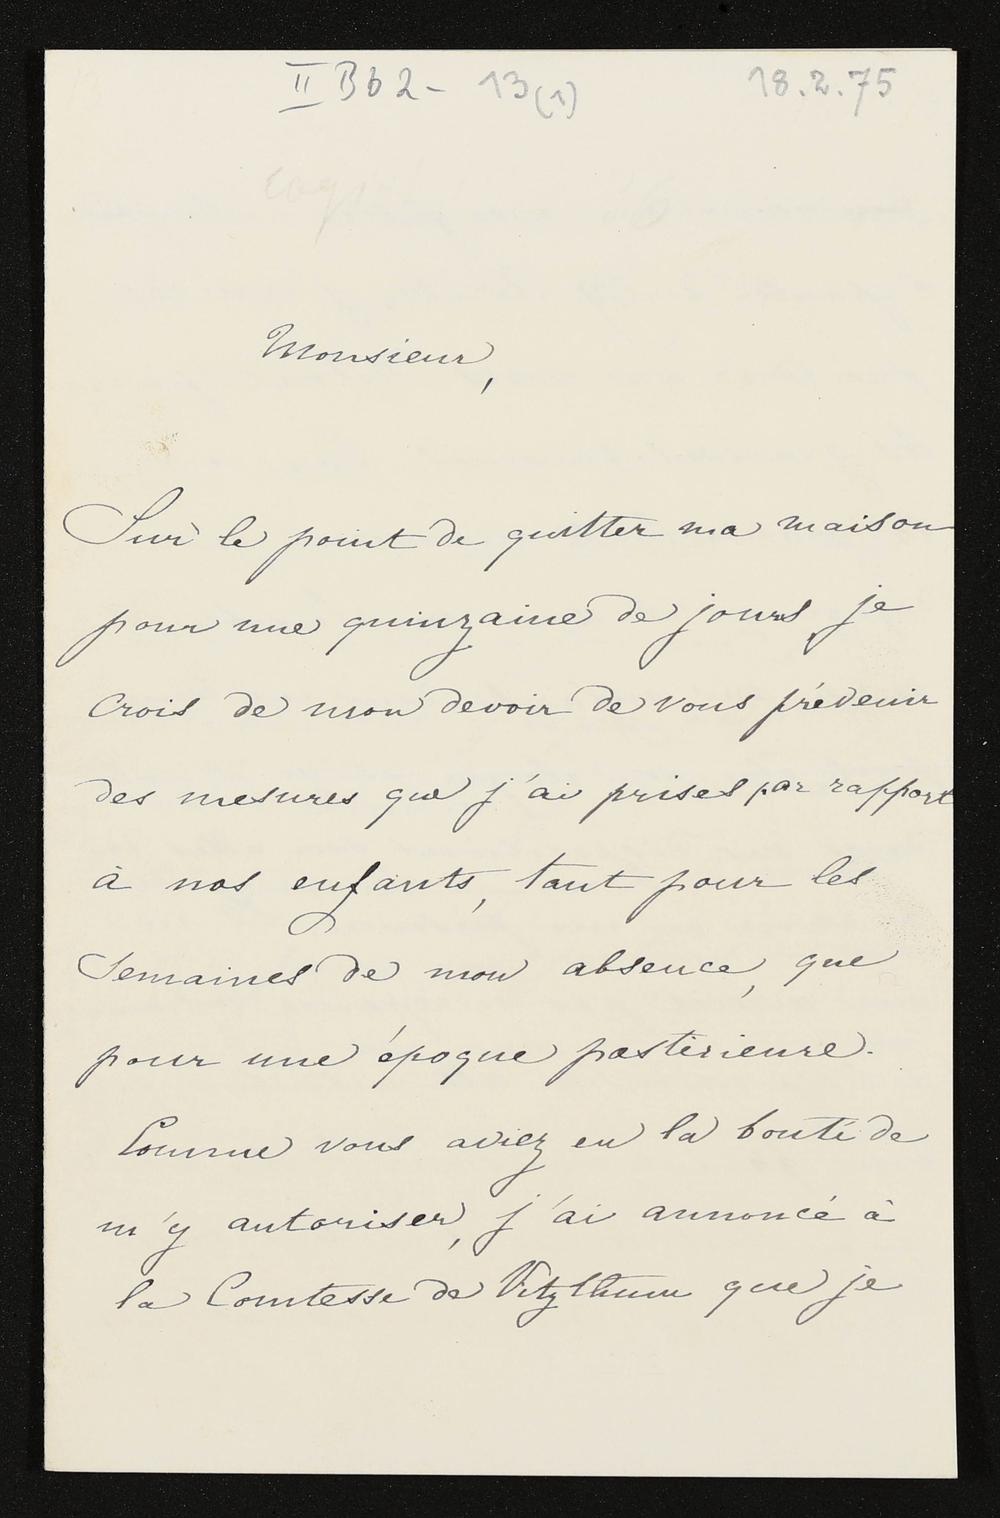 II Bb 2 - 13(1) 18.2.75
Monsieur,
Sur le point de quitter ma maison
pour une quinzaine de jours, je
crois de mon devoir de vous prévenir
des mesures que j'ai prises par rapport
à nos enfants, tant pour les
semaines de mon absence, que
pour une époque postérieure.
Comme vous aviez eu la bonté de
m'y autoriser, j'ai annoncé à
la Comtesse de Vitzthum que je